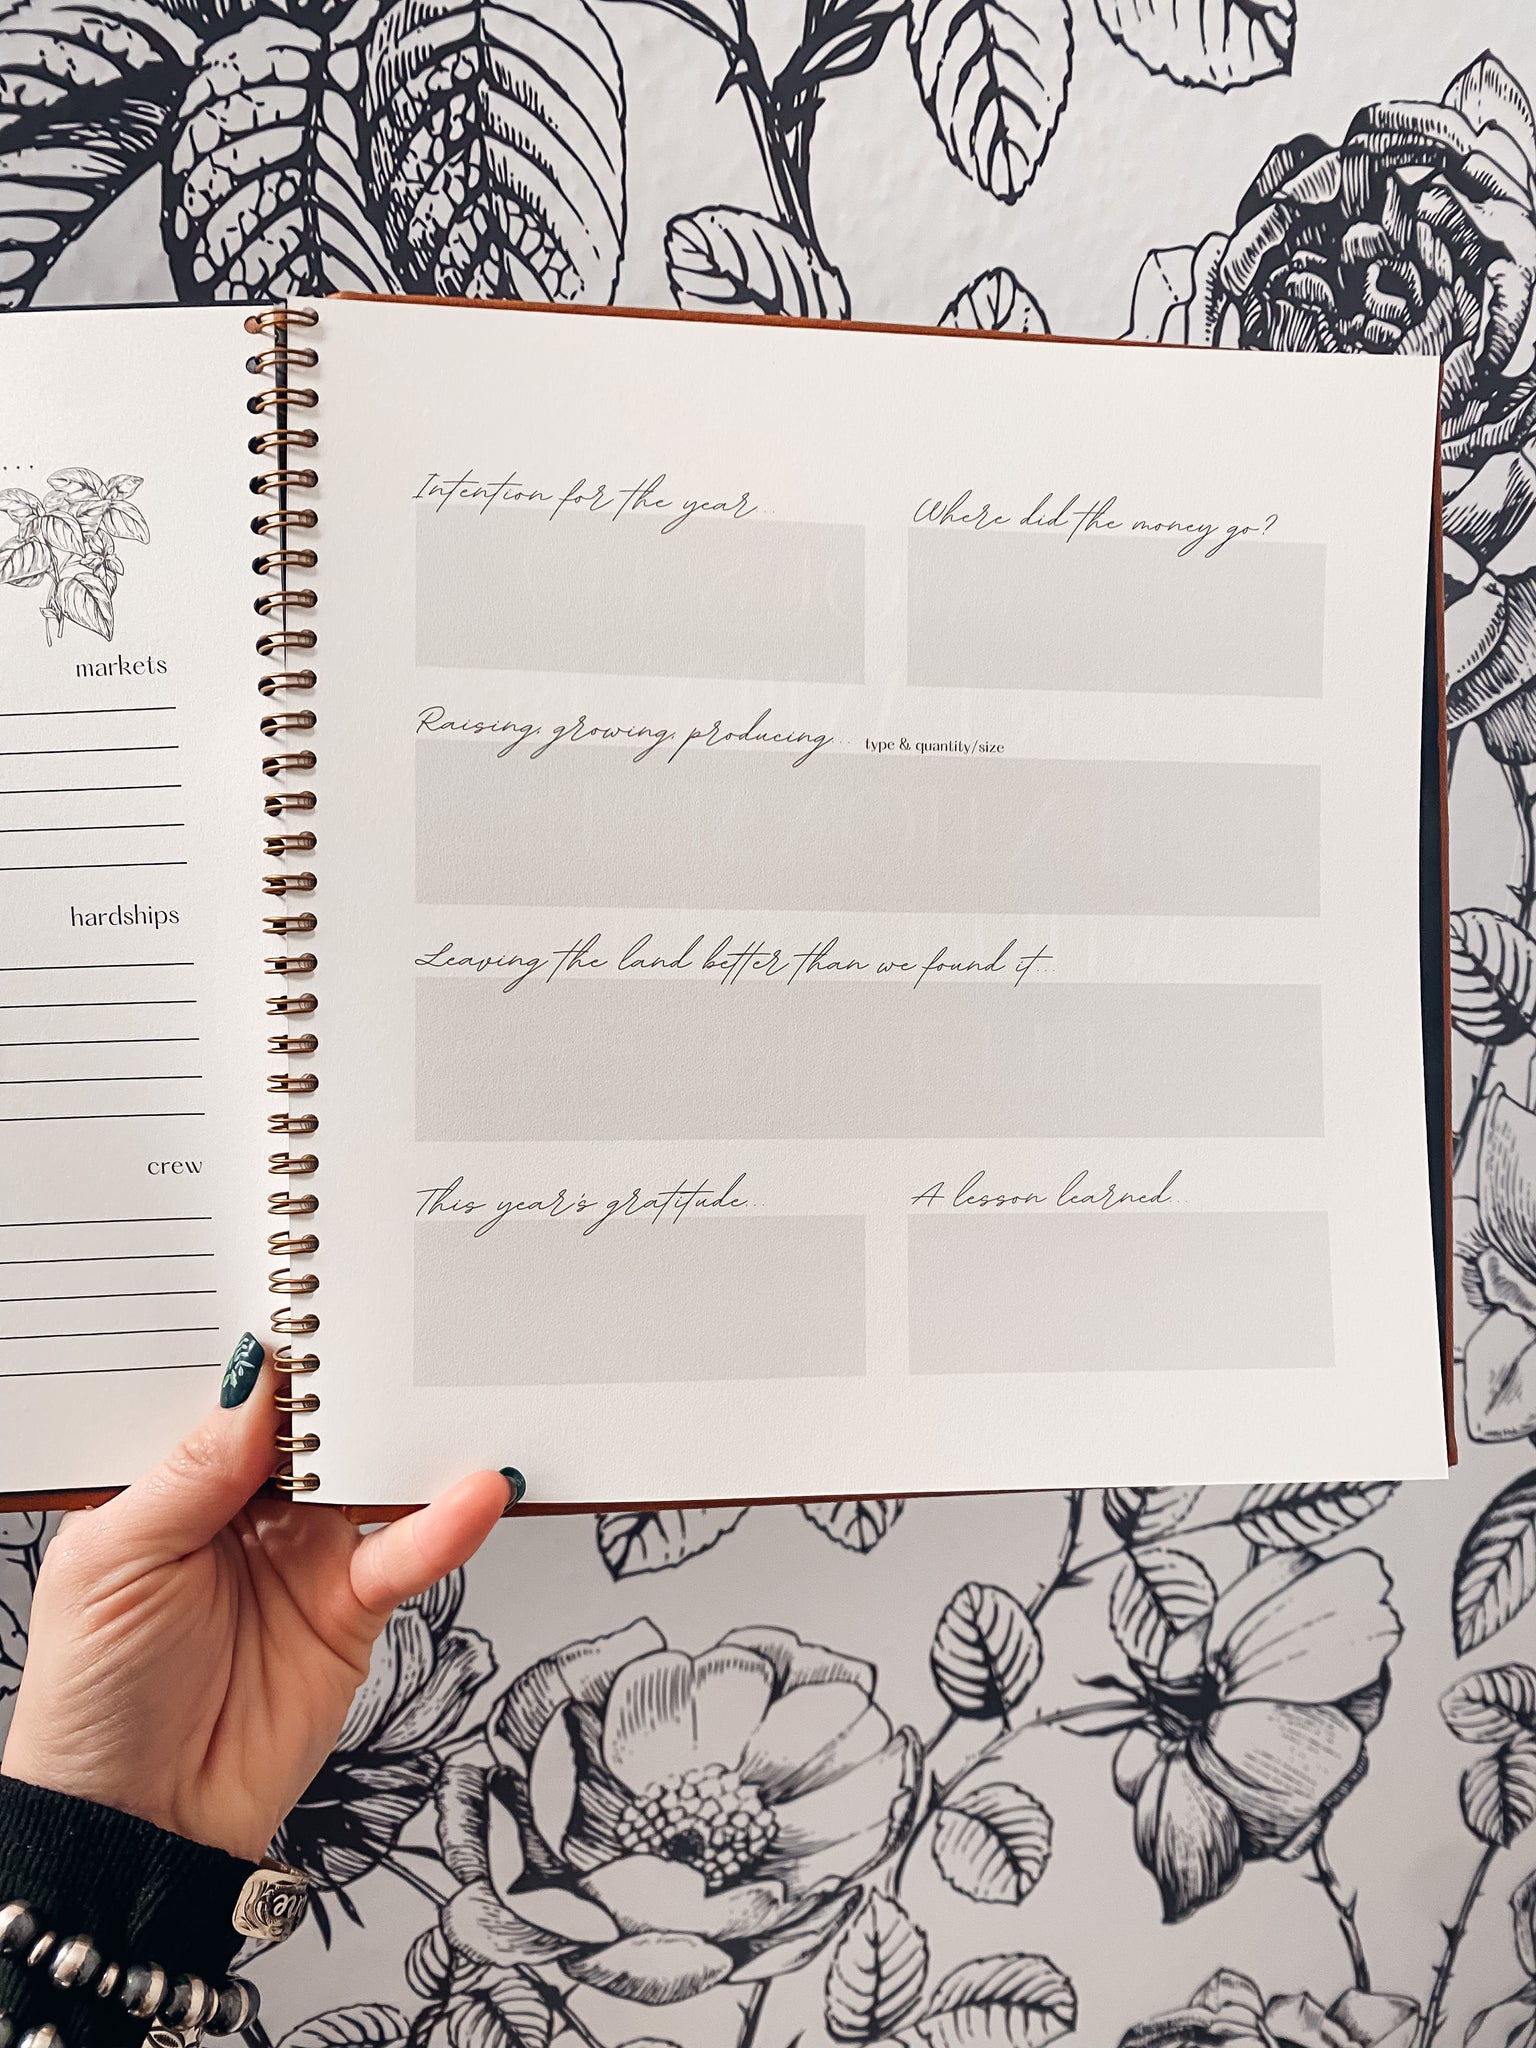 markets
hardships
crew
Intention for the year...
Where did the money go?
Raising, growing, producing... type & quantity/size
Leaving the land better than we found it...
This year's gratitude...
A lesson learned...